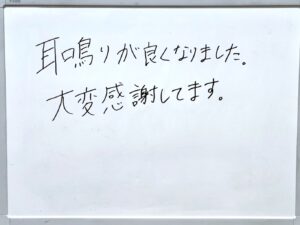 耳鳴りが良くなりました。
大変感謝してます。